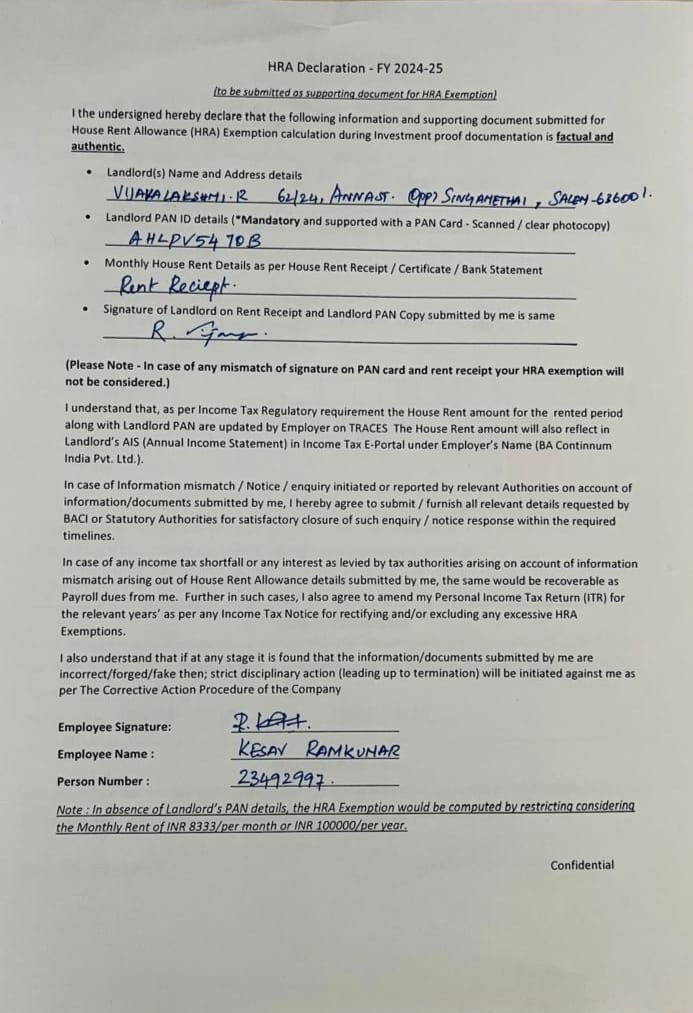 HRA Declaration - FY 2024-25
(to be submitted as supporting document for HRA Exemption)
I the undersigned hereby declare that the following information and supporting document submitted for
House Rent Allowance (HRA) Exemption calculation during Investment proof documentation is factual and
authentic.
• Landlord(s) Name and Address details
VIJAYALAKSHMI.R 62/24, ANNAST. OPP) SINGAMETHAI, SALEM-636001.
• Landlord PAN ID details (*Mandatory and supported with a PAN Card - Scanned / clear photocopy)
AHLPV5470B
• Monthly House Rent Details as per House Rent Receipt / Certificate / Bank Statement
Rent Reciept.
• Signature of Landlord on Rent Receipt and Landlord PAN Copy submitted by me is same
R.
(Please Note - In case of any mismatch of signature on PAN card and rent receipt your HRA exemption will
not be considered.)
I understand that, as per Income Tax Regulatory requirement the House Rent amount for the rented period
along with Landlord PAN are updated by Employer on TRACES The House Rent amount will also reflect in
Landlord's AIS (Annual Income Statement) in Income Tax E-Portal under Employer's Name (BA Continnum
India Pvt. Ltd.).
In case of Information mismatch / Notice / enquiry initiated or reported by relevant Authorities on account of
information/documents submitted by me, I hereby agree to submit / furnish all relevant details requested by
BACI or Statutory Authorities for satisfactory closure of such enquiry / notice response within the required
timelines.
In case of any income tax shortfall or any interest as levied by tax authorities arising on account of information
mismatch arising out of House Rent Allowance details submitted by me, the same would be recoverable as
Payroll dues from me. Further in such cases, I also agree to amend my Personal Income Tax Return (ITR) for
the relevant years' as per any Income Tax Notice for rectifying and/or excluding any excessive HRA
Exemptions.
I also understand that if at any stage it is found that the information/documents submitted by me are
incorrect/forged/fake then; strict disciplinary action (leading up to termination) will be initiated against me as
per The Corrective Action Procedure of the Company
Employee Signature:
Employee Name : KESAV RAMKUMAR
Person Number : 23492997.
Note : In absence of Landlord's PAN details, the HRA Exemption would be computed by restricting considering
the Monthly Rent of INR 8333/per month or INR 100000/per year.
Confidential